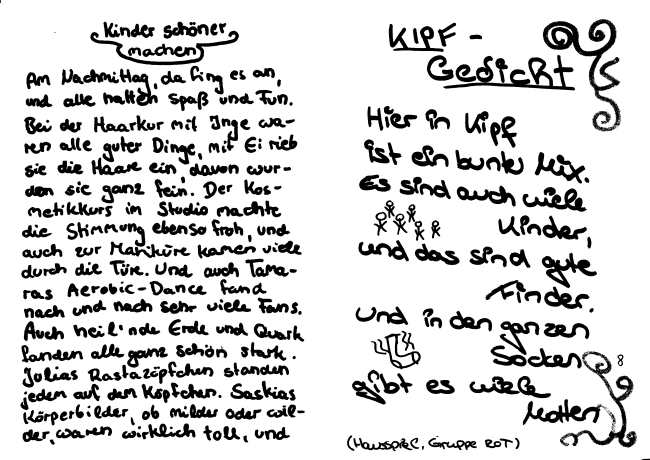 Kinder schöner
machen
Am Nachmittag, da fing es an,
und alle hatten Spaß und Fun.
Bei der Haarkur mit Inge wa-
ren alle guter Dinge, mit Ei rieb
sie die Haare ein, davon wur-
den sie ganz fein. Der Kos-
metikkurs im Studio machte
die Stimmung ebenso froh, und
auch zur Maniküre kamen viele
durch die Türe. Und auch Tama-
ras Aerobic-Dance fand
nach und nach sehr viele Fans.
Auch Heil'nde Erde und Quark
fanden alle ganz schön stark.
Julias Rastazöpfchen standen
jedem auf den Köpfchen. Saskias
Körperbilder, ob milder oder wil-
der, waren wirklich toll, und
KIPF -
Gedicht
Hier in Kipf
ist ein bunter Mix.
Es sind auch viele
Kinder,
und das sind gute
Finder.
Und in den ganzen
Socken
gibt es viele
Motten
(Hausspiel, Gruppe ROT)
8